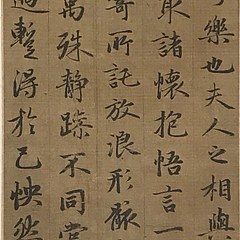 樂也夫人之相與
取諸懷抱悟言一
寄所託放浪形骸
萬殊靜躁不同當
蹔得於己怏然